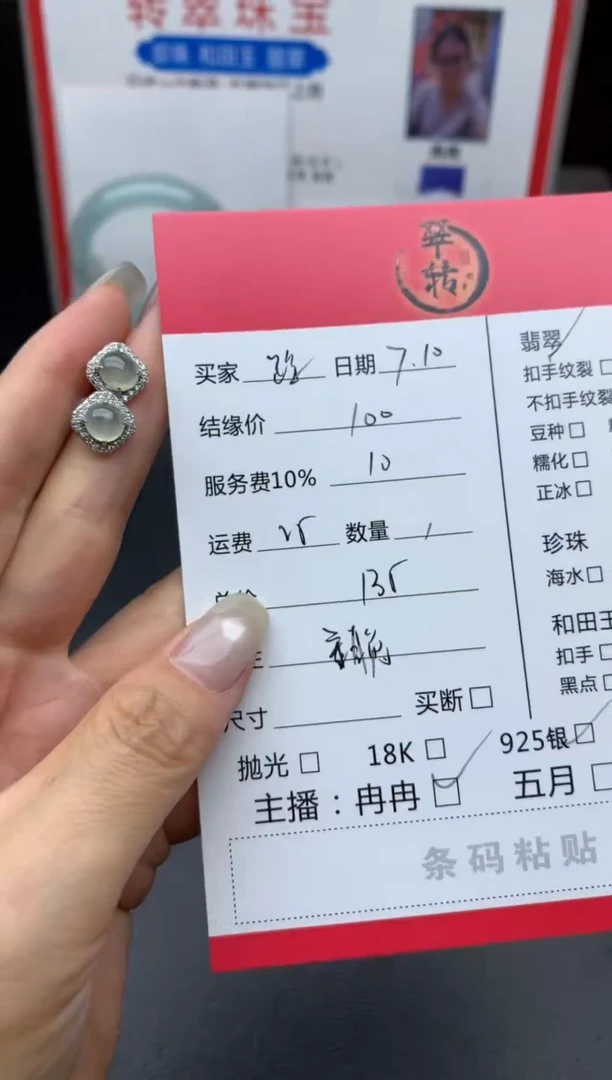 转翠珠宝
翠转
买家 日期 7.10
结缘价 100
服务费10% 10
运费 25 数量 1
总价 135
尺寸 买断□
抛光□ 18K□ 925银□
主播：冉冉□ 五月□
条码粘贴
翡翠
扣手纹裂□
不扣手纹裂
豆种□
糯化□
正冰□
珍珠
海水□
和田玉
扣手□
黑点□